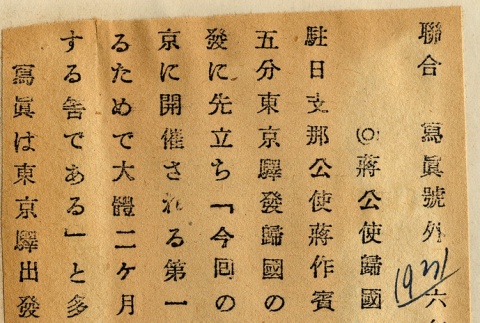 聯合 寫眞號外 六
◎蔣公使歸國
駐日支那公使蔣作賓
五分東京驛發歸國の
發に先立ち「今囘の
京に開催される第一
るためで大體二ケ月
する筈である」と多
寫眞は東京驛出發